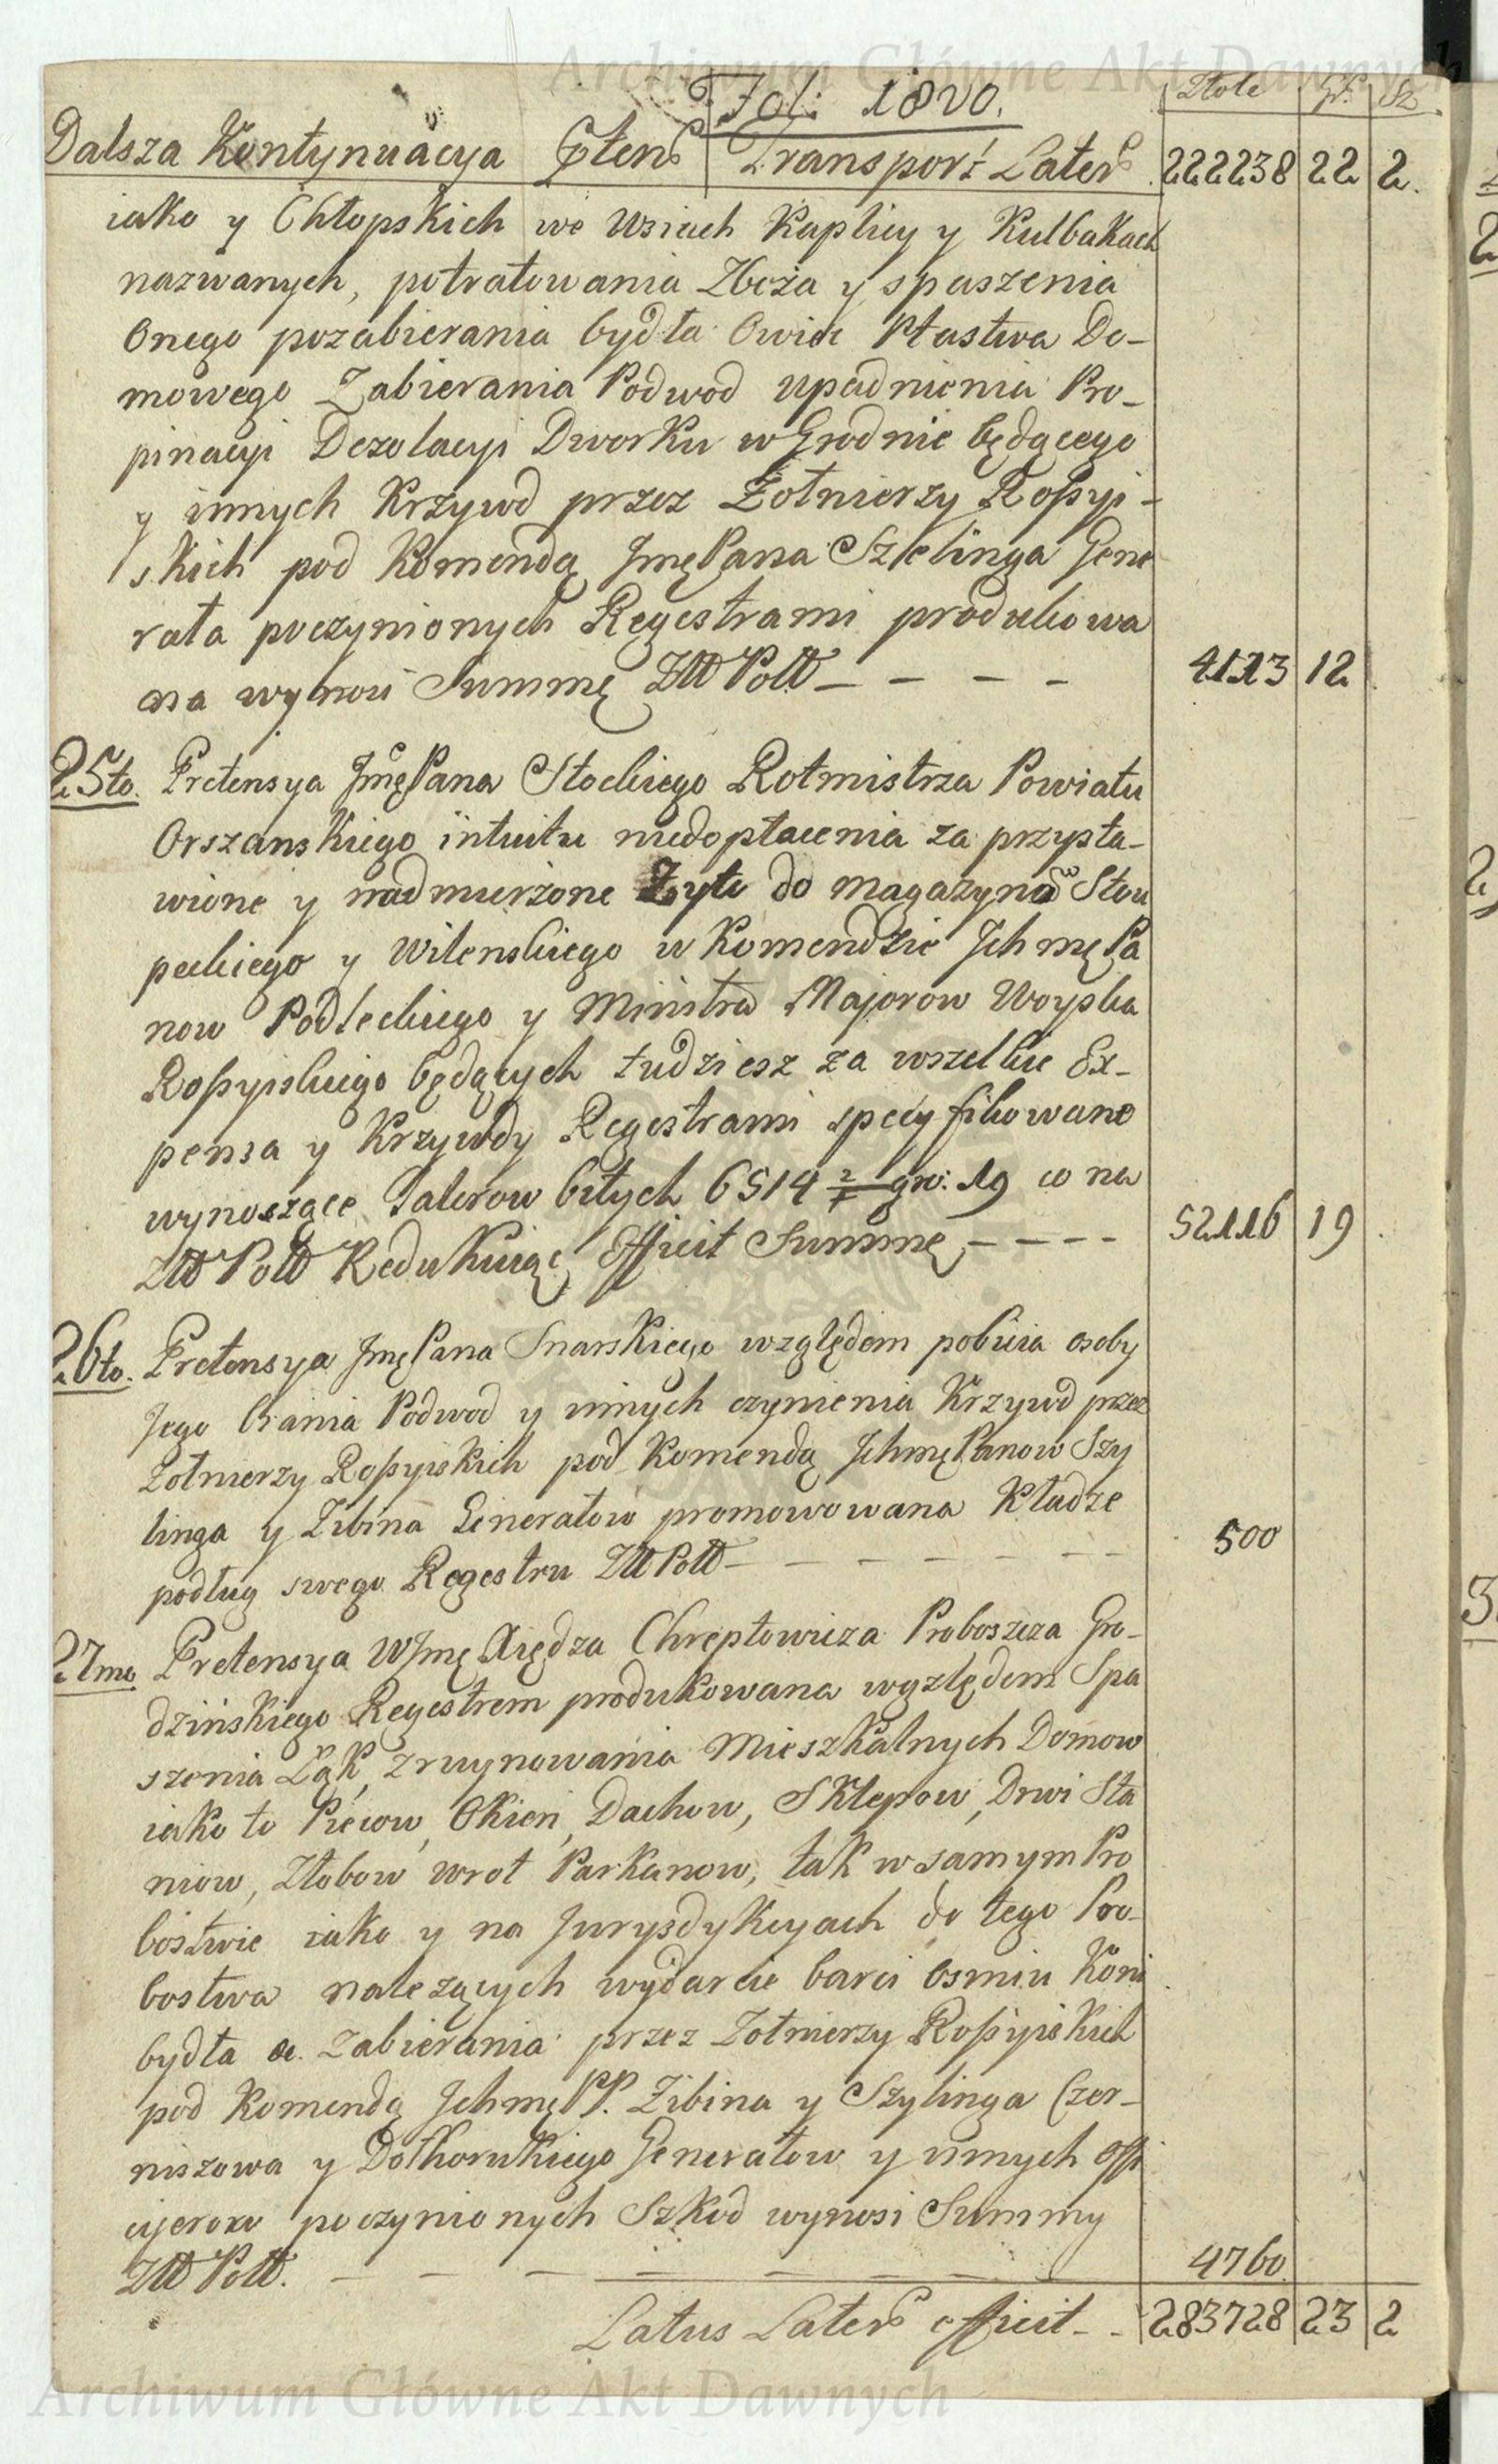 Archiwum Główne Akt Dawnych
Fol: 1820.
Złote | gr. | Sz
Dalsza Kontynuacya Ptens | Transport Laters | 222238 | 22 | 2.
iako y Chłopskich we Wsiach Kaplicy y Kulbakach
nazwanych, potratowania Zboża y spaszenia
Onego pozabierania bydła Owiec Ptastwa Do-
mowego Zabierania Podwod upadnienia Pro-
pinacyi Dezolacyi Dworku w Grodnie będącego
y innych Krzywd przez Żołnierzy Rossyi-
skich pod Komendą JmęPana Szelinga Gene
rała poczynionych Regestrami produkowa
na wynosi Summę Złł Poll — — — — 4113 | 12
25to. Pretensya JmęPana Stockiego Rotmistrza Powiatu
Orszanskiego intuitu niedopłacenia za przysta-
wione y nadmierzone Żyto do magazynow Stou
peckiego y Wilenskiego w Komendzie Jchmę Pa
now Podleckiego y Ministra Majorow Woyska
Rossyiskiego będących tudziesz za wszelkie Ex-
pensa y Krzywdy Regestrami specyfikowane
wynoszące Talerow bitych 6514 gr: 19 co na
Złł Poll Redukuiąc Efficit Summę — — — — 52116 | 19
26to. Pretensya JmęPana Snarskiego względem pobicia osoby
Jego brania Podwod y innych czynienia Krzywd przez
Żołnierzy Rossyiskich pod Komendą JchmęPanow Szy
linga y Zibina Generałow promowowana Kładze
podług swego Regestru Złł Poll — — — — — — 500
27mo Pretensya WJmę Xiędza Chreptowicza Proboszcza Gro-
dzińskiego Regestrem produkowana względem Spa
szenia Łąk, zruynowania Mieszkalnych Domow
iako to Piecow, Okien, Dachow, Sklepow, Drwi Sta
niow, Złobow wrot Parkanow, tak w samym Pro
bostwie iako y na Jurysdykcyach do tego Pro-
bostwa należących wydarcie barci osmiu Koni
bydła &. zabierania przez Zołnierzy Rossyiskich
pod Komendą Jchmę PP. Zibina y Szylinga Czer-
niszowa y Dolhorukiego Generałow y innych Offi
cyerow poczynionych Szkod wynosi Summy
Złł Poll. — — — — — — 4760
Latus Laters efficit - - 283728 | 23 | 2
Archiwum Główne Akt Dawnych